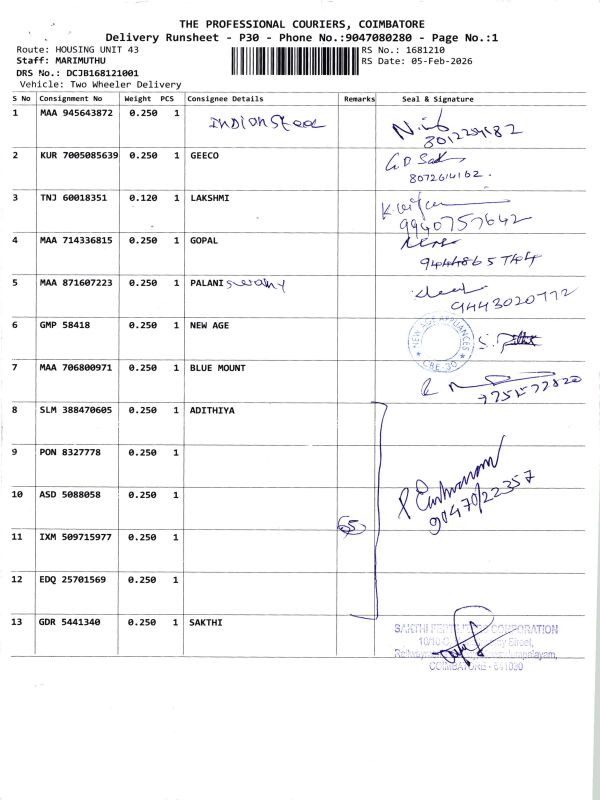 THE PROFESSIONAL COURIERS, COIMBATORE
Delivery Runsheet - P30 - Phone No.:9047080280 - Page No.:1
Route: HOUSING UNIT 43
RS No.: 1681210
Staff: MARIMUTHU
RS Date: 05-Feb-2026
DRS No.: DCJB168121001
Vehicle: Two Wheeler Delivery
S No Consignment No Weight PCS Consignee Details Remarks Seal & Signature
1 MAA 945643872 0.250 1
2 KUR 7005085639 0.250 1 GEECO
8072614162.
3 TNJ 60018351 0.120 1 LAKSHMI
9940757642
4 MAA 714336815 0.250 1 GOPAL
5 MAA 871607223 0.250 1 PALANI swamy
9443020772
6 GMP 58418 0.250 1 NEW AGE
NEW AGE APPLIANCES
CBE-30
7 MAA 706800971 0.250 1 BLUE MOUNT
8 SLM 388470605 0.250 1 ADITHIYA
9 PON 8327778 0.250 1
10 ASD 5088058 0.250 1
9047022357
11 IXM 509715977 0.250 1
65
12 EDQ 25701569 0.250 1
13 GDR 5441340 0.250 1 SAKTHI
SAKTHI CORPORATION
Street,
COIMBATORE - 641030